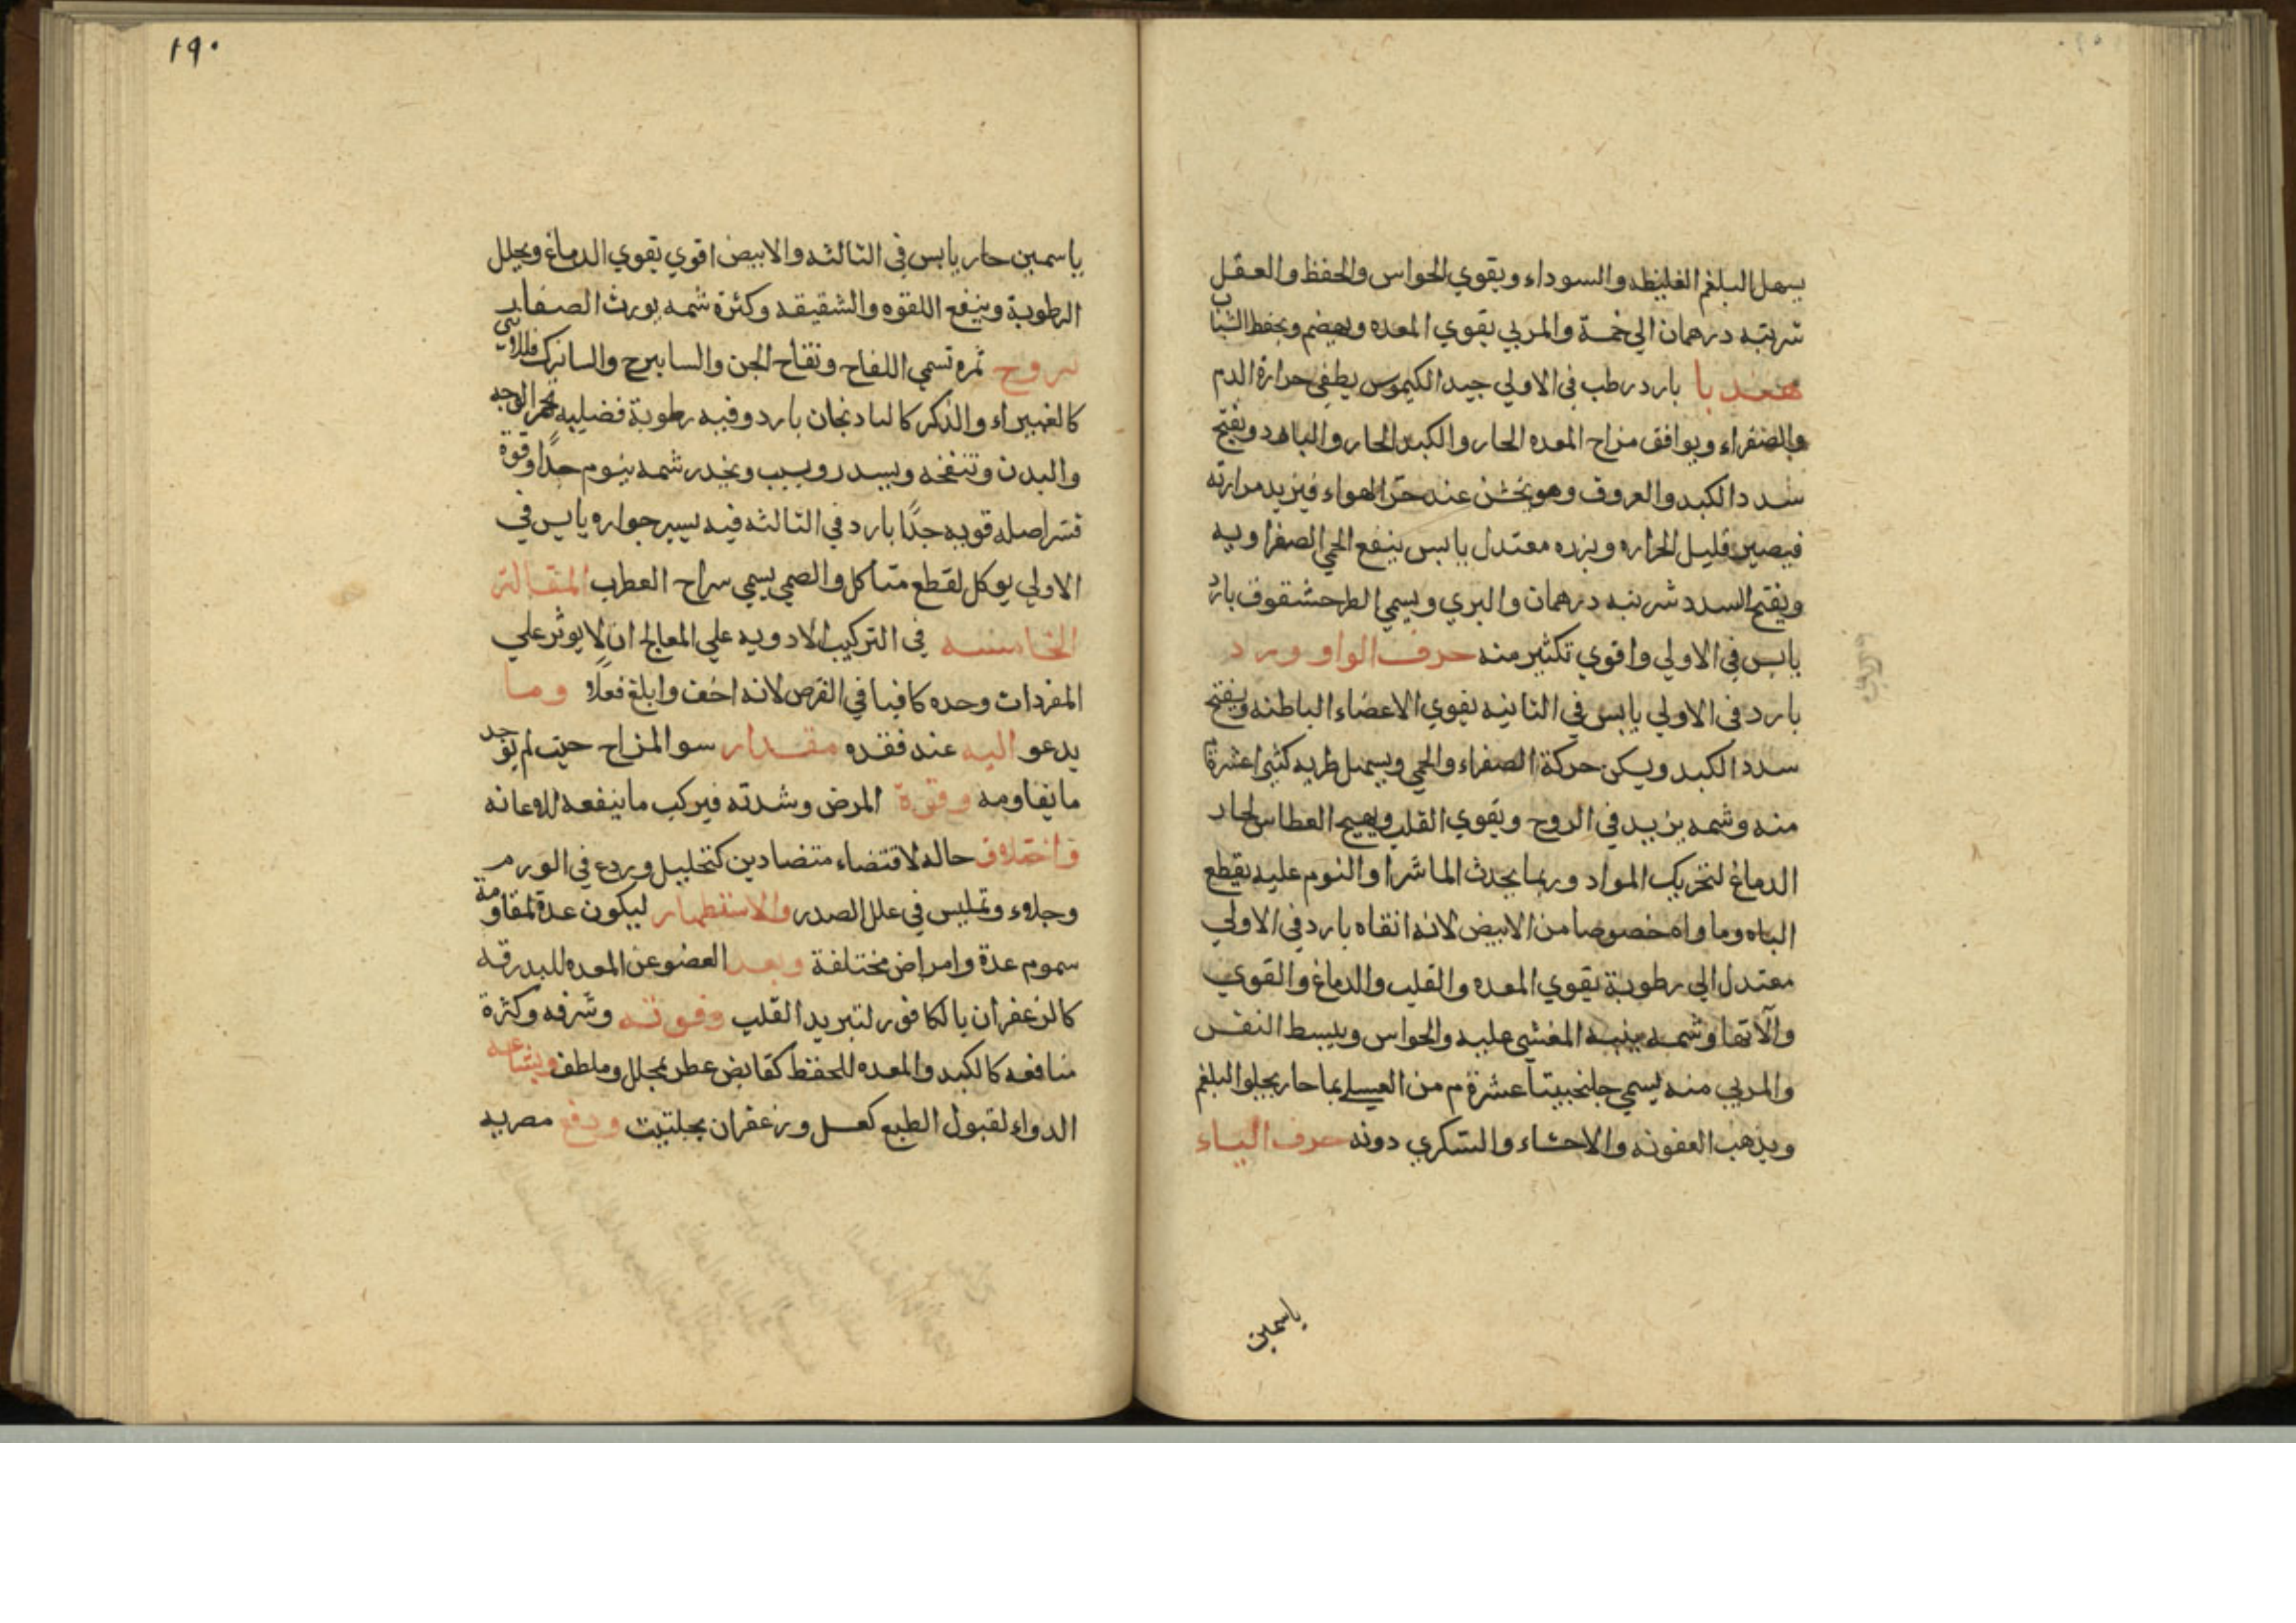 يسهل البلغم الغليظه والسوداء ويقوي الحواس والحفظ والعقل
شربته درهمان الي خمسة والمربي يقوي المعده ويهضم ويحفظ الشباب
هندبا بارد رطب في الاولي جيد الكيموس يطفي حرارة الدم
والصفراء ويوافق مزاج المعده الحار والكبد الحار والبارد ويفتح
سدد الكبد والعروق وهو عند حر الهواء فيزيد مرارته
فيصير قليل الحراره وبزره معتدل يابس ينفع الحمي الصفراويه
ويفتح السدد شربته درهمان والبري ويسمي الطرحشقوق بارد
يابس في الاولي واقوي تكثير منه حرف الواو ورد
بارد في الاولي يابس في الثانيه يقوي الاعضاء الباطنه ويفتح
سدد الكبد ويسكن حركة الصفراء والحمي ويسهل طريه كثيرا عشرة
منه وشمه يزيد في الروح ويقوي القلب ويهيج العطاس لحار
الدماغ لتحريك المواد وربما يحدث الماشرا والنوم عليه يقطع
الباه وماواه خصوصا من الابيض لانه انقاه بارد في الاولي
معتدل الي رطوبة يقوي المعده والقلب والدماغ والقوي
وآلاتها وشمه ينبه المغشي عليه والحواس ويبسط النفس
والمربي منه يسمي جلنجبينا عشرة م من العسلي بما حار يجلوا البلغم
ويذهب العفونه والاحشاء والسكري دونه حرف الياء
ياسمين
١٩٠
ياسمين حار يابس في الثالثه والابيض اقوي يقوي الدماغ ويحلل
الرطوبة وينفع اللقوه والشقيقه وكثرة شمه يورث الصفار
يبروح ثمره تسمي اللفاح وتفاح الجن والسابيرج فللانثي
كالغبيراء والذكر كالبادنجان بارد وفيه رطوبة فضليه تحمر الوجه
والبدن وتنفخه ويسدر ويسبت ويخدر شمه ينوم جدا وقوة
قشر اصله قويه جدًا بارد في الثالثه فيه يسير حراره يابس في
الاولي يوكل لقطع متاكل والصمي يسمي سراج القطرب المقالة
الخامسه في التركيب الادويه علي المعالج ان لا يوثر علي
المفردات وحده كافيا في الغرض لانه اخف وابلغ فعلًا وما
يدعو اليه عند فقده مقدار سو المزاج حيث لم يوجد
ما يقاومه وقوة المرض وشدته فيركب ما ينفعه للاعانه
واختلاف حاله لاقتضاء متضادين كتحليل وردع في الورم
وجلاء وتمليس في علل الصدر والاستظهار ليكون عدة لمقاومة
سموم عدة وامراض مختلفة وبعد العضو عن المعده للبدرقه
كالزعفران بالكافور لتبريد القلب وقوته وشرفه وكثرة
منافعه كالكبد والمعده للحفظ كقابض عطر بمحلل وملطف وبشاعه
الدواء لقبول الطبع كعسل وزعفران بحلتيت ودفع مضريه